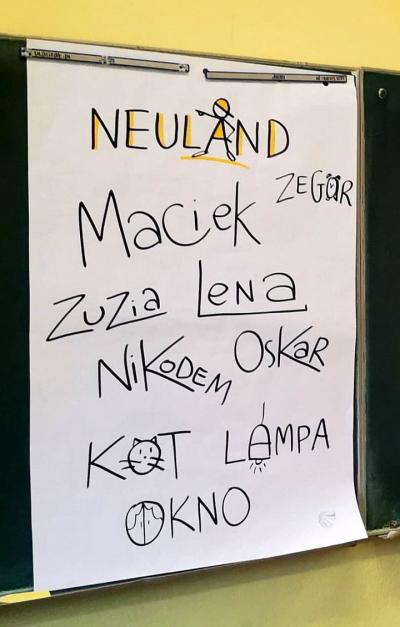 NEULAND
ZEGAR
Maciek
Zuzia Lena
Nikodem Oskar
KOT LAMPA
OKNO